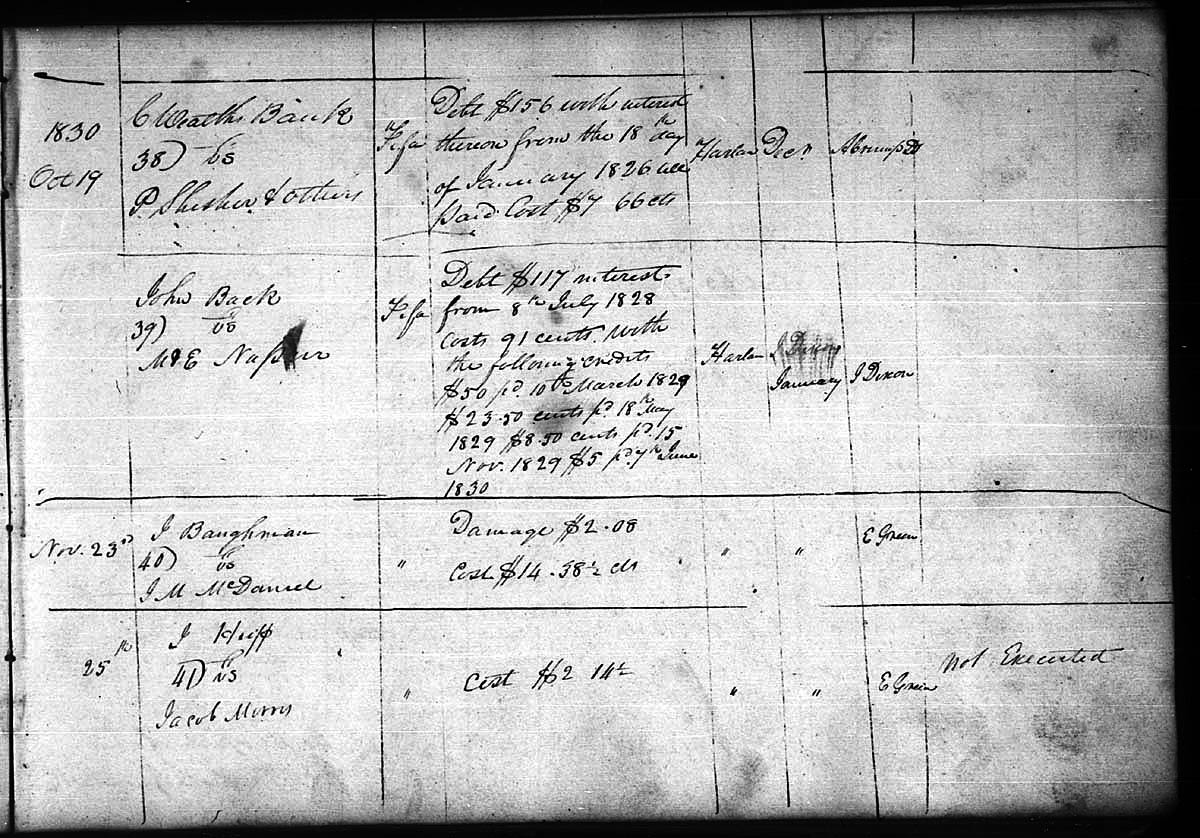 1830
Oct 19
C Wealths Bank
38) vs
P. & others
Fi fa
Debt $156 with interest
thereon from the 18th day
of January 1826 till
paid Cost $7 66 cts
Harlan Decr
John Back
39) vs
M & E
Fi fa
Debt $117 interest
from 8th July 1828
Costs 91 cents. with
the following credits
$50 pd. 10th March 1829
$23.50 cents pd 18th May
1829 $8.50 cents pd. 15
Nov. 1829 $5 pd. 7th June
1830
Harlan
January J Dixon
Nov. 23d
J Baughman
40) vs
J M McDaniel
"
Damage $2.08
Cost $14.58½ cts
" "
E Green
25th
J
41) vs
Jacob Morris
"
Cost $2 14½
" "
E Green
Not Executed